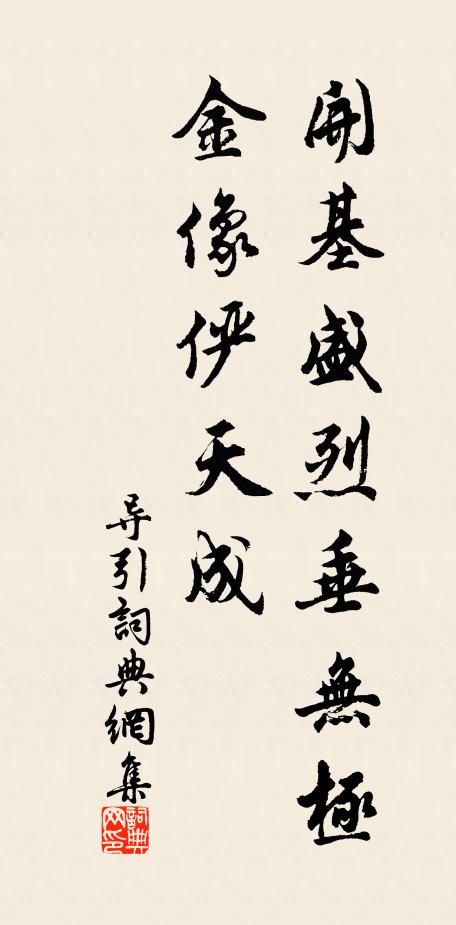 開基盛烈垂無極
金像俨天成
导引詞典網集
詞典网印